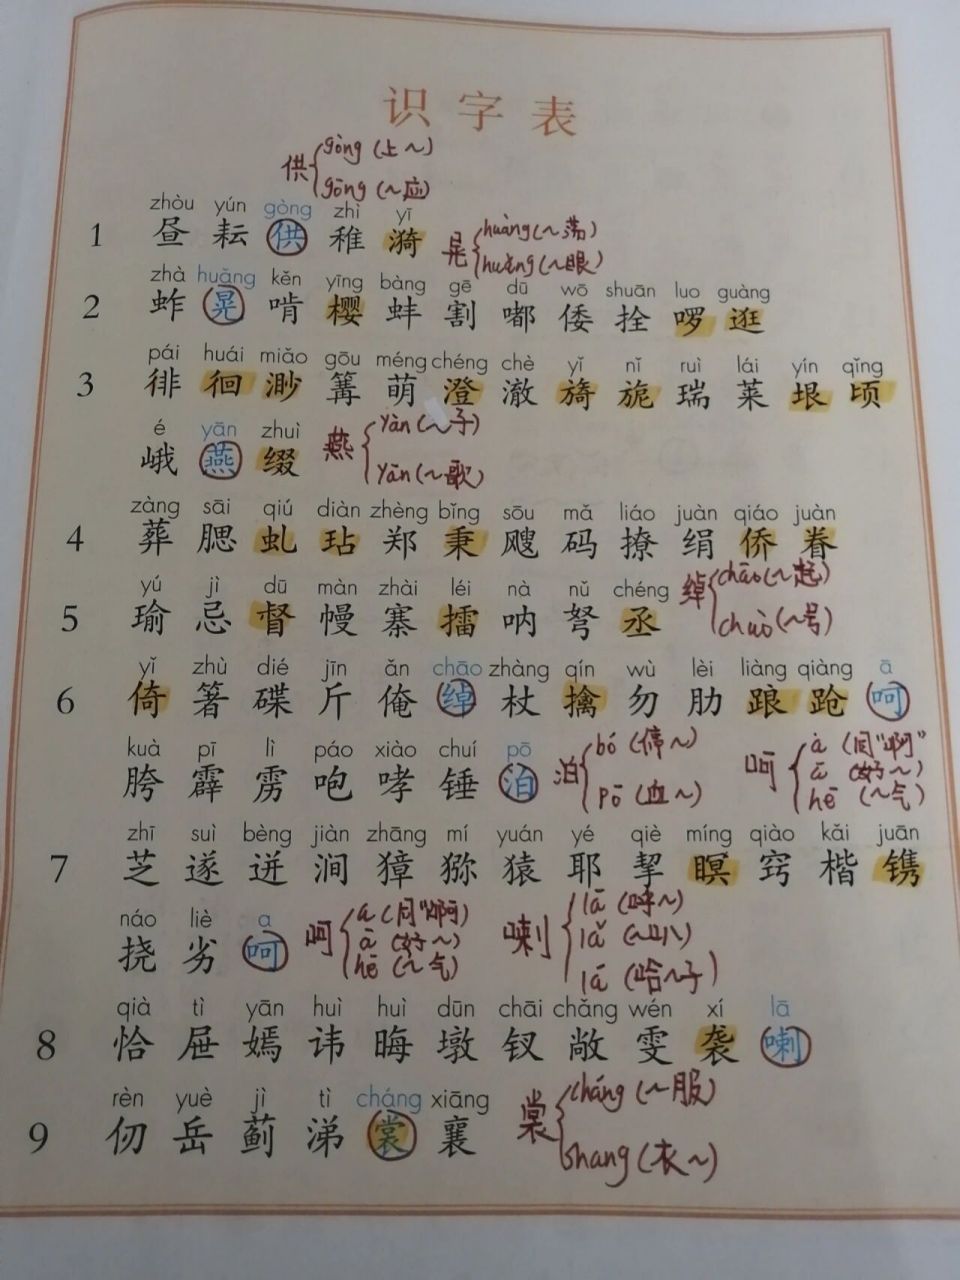 识字表
供 gòng (上～)
gōng (～应)
zhòu yún gòng zhì yī
1 昼 耘 供 稚 漪
晃 huàng (～荡)
huǎng (～眼)
zhà huǎng kěn yīng bàng gē dū wō shuān luo guàng
2 蚱 晃 啃 樱 蚌 割 嘟 倭 拴 啰 逛
pái huái miǎo gōu méng chéng chè yǐ nǐ ruì lái yín qǐng
3 徘 徊 渺 篝 萌 澄 澈 旖 旎 瑞 莱 垠 顷
é yān zhuì
峨 燕 缀
燕 yàn (～子)
yān (～歌)
zàng sāi qiú diàn zhèng bǐng sōu mǎ liáo juàn qiáo juàn
4 葬 腮 虬 玷 郑 秉 飕 码 撩 绢 侨 眷
yú jì dū màn zhài léi nà nǔ chéng
5 瑜 忌 督 幔 寨 擂 呐 弩 丞
绰 chāo (～起)
chuò (～号)
yǐ zhù dié jīn ǎn chāo zhàng qín wù lèi liàng qiàng ā
6 倚 箸 碟 斤 俺 绰 杖 擒 勿 肋 踉 跄 呵
kuà pī lì páo xiào chuí pō
胯 霹 雳 咆 哮 锤 泊
泊 bó (停～)
pō (血～)
呵 à (同"啊"
ā (好～)
hē (～气)
zhī suì bèng jiàn zhāng mí yuán yé qiè míng qiào kǎi juān
7 芝 遂 迸 涧 獐 猕 猿 耶 挈 瞑 窍 楷 镌
náo liè a
挠 劣 呵
呵 a (同"啊)
ā (好～)
hē (～气)
喇 lā (呼～)
lǎ (～叭)
lá (哈～子)
qià tì yān huì huì dūn chāi chǎng wén xí lā
8 恰 屉 嫣 讳 晦 墩 钗 敞 雯 袭 喇
rèn yuè jì tì cháng xiāng
9 仞 岳 蓟 涕 裳 襄
裳 cháng (～服)
shang (衣～)